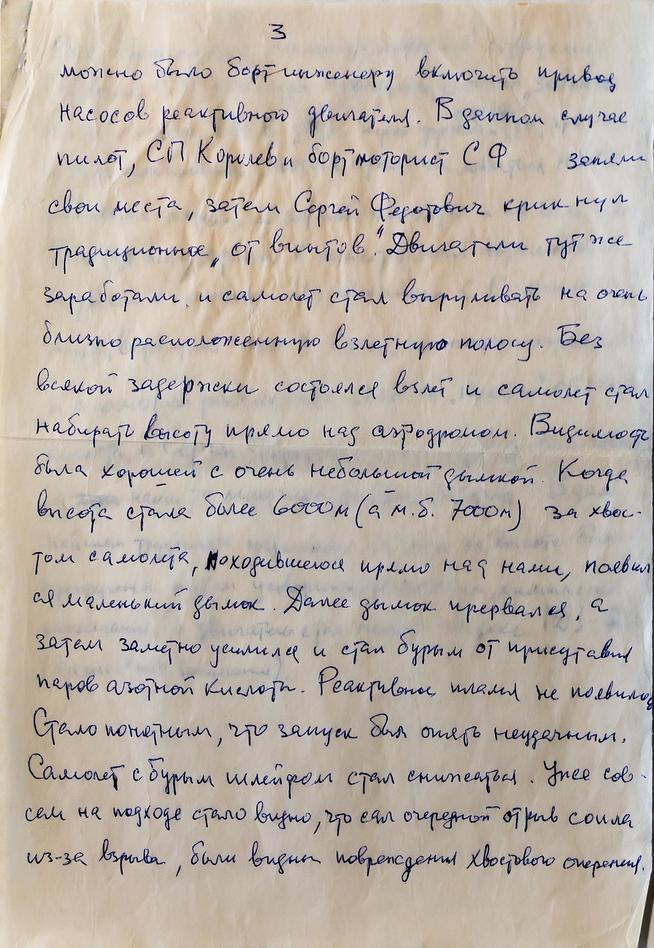 3
можно было бортинженеру включить привод
насосов реактивного двигателя. В данном случае
пилот, СП Королев и бортмоторист СФ заняли
свои места, затем Сергей Федотович крикнул
традиционное „от винтов". Двигатели тут же
заработали и самолет стал выруливать на очень
близко расположенную взлетную полосу. Без
всякой задержки состоялся взлет и самолет стал
набирать высоту прямо над аэродромом. Видимость
была хорошей с очень небольшой дымкой. Когда
высота стала более 6000м (а м.б. 7000м) за хвос-
том самолета, находившегося прямо над нами, появил
ся маленький дымок. Далее дымок прервался, а
затем заметно усилился и стал бурым от присутствия
паров азотной кислоты. Реактивное пламя не появилось
Стало понятным, что запуск был опять неудачным.
Самолет с бурым шлейфом стал снижаться. Уже сов-
сем на подходе стало видно, что очередной отрыв сопла
из-за взрыва, были видны повреждения хвостового оперения.